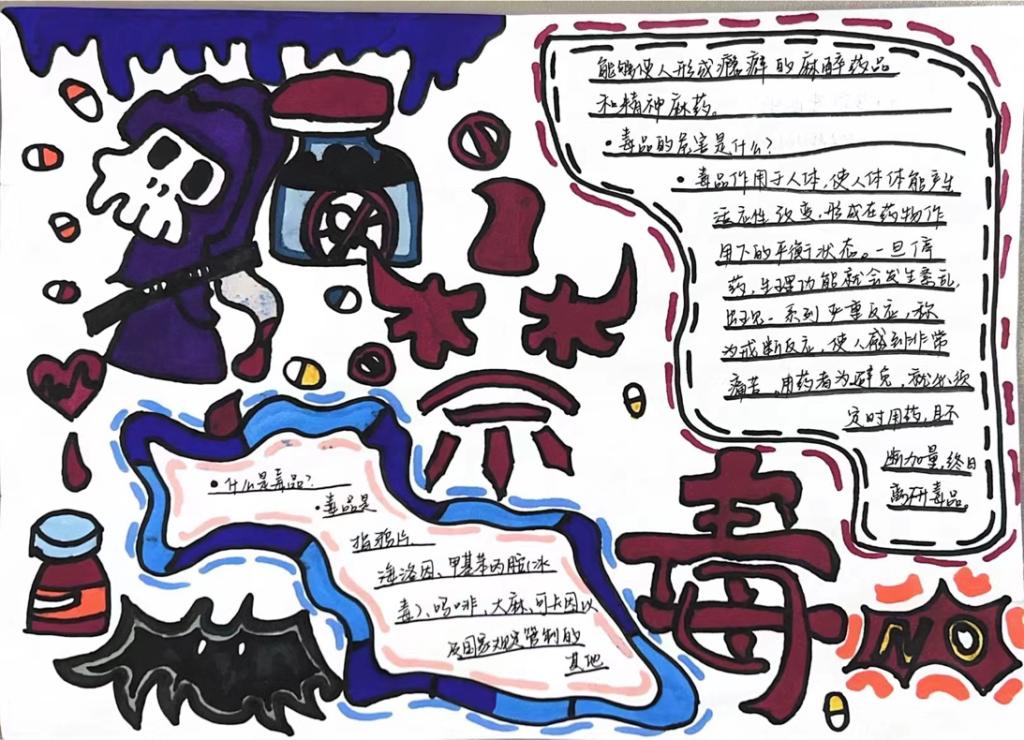 禁毒
• 什么是毒品？
• 毒品是
指鸦片、
海洛因、甲基苯丙胺(冰
毒)、吗啡、大麻、可卡因以
及国家规定管制的
其他
能够使人形成瘾癖的麻醉药品
和精神麻药。
• 毒品的危害是什么？
• 毒品作用于人体，使人体体能产生
适应性改变，形成在药物作
用下的平衡状态。一旦停
药，生理功能就会发生紊乱，
出现一系列严重反应，称
为戒断反应，使人感到非常
痛苦。用药者为避免，就必须
定时用药，且不
断加量，终日
离开毒品
NO